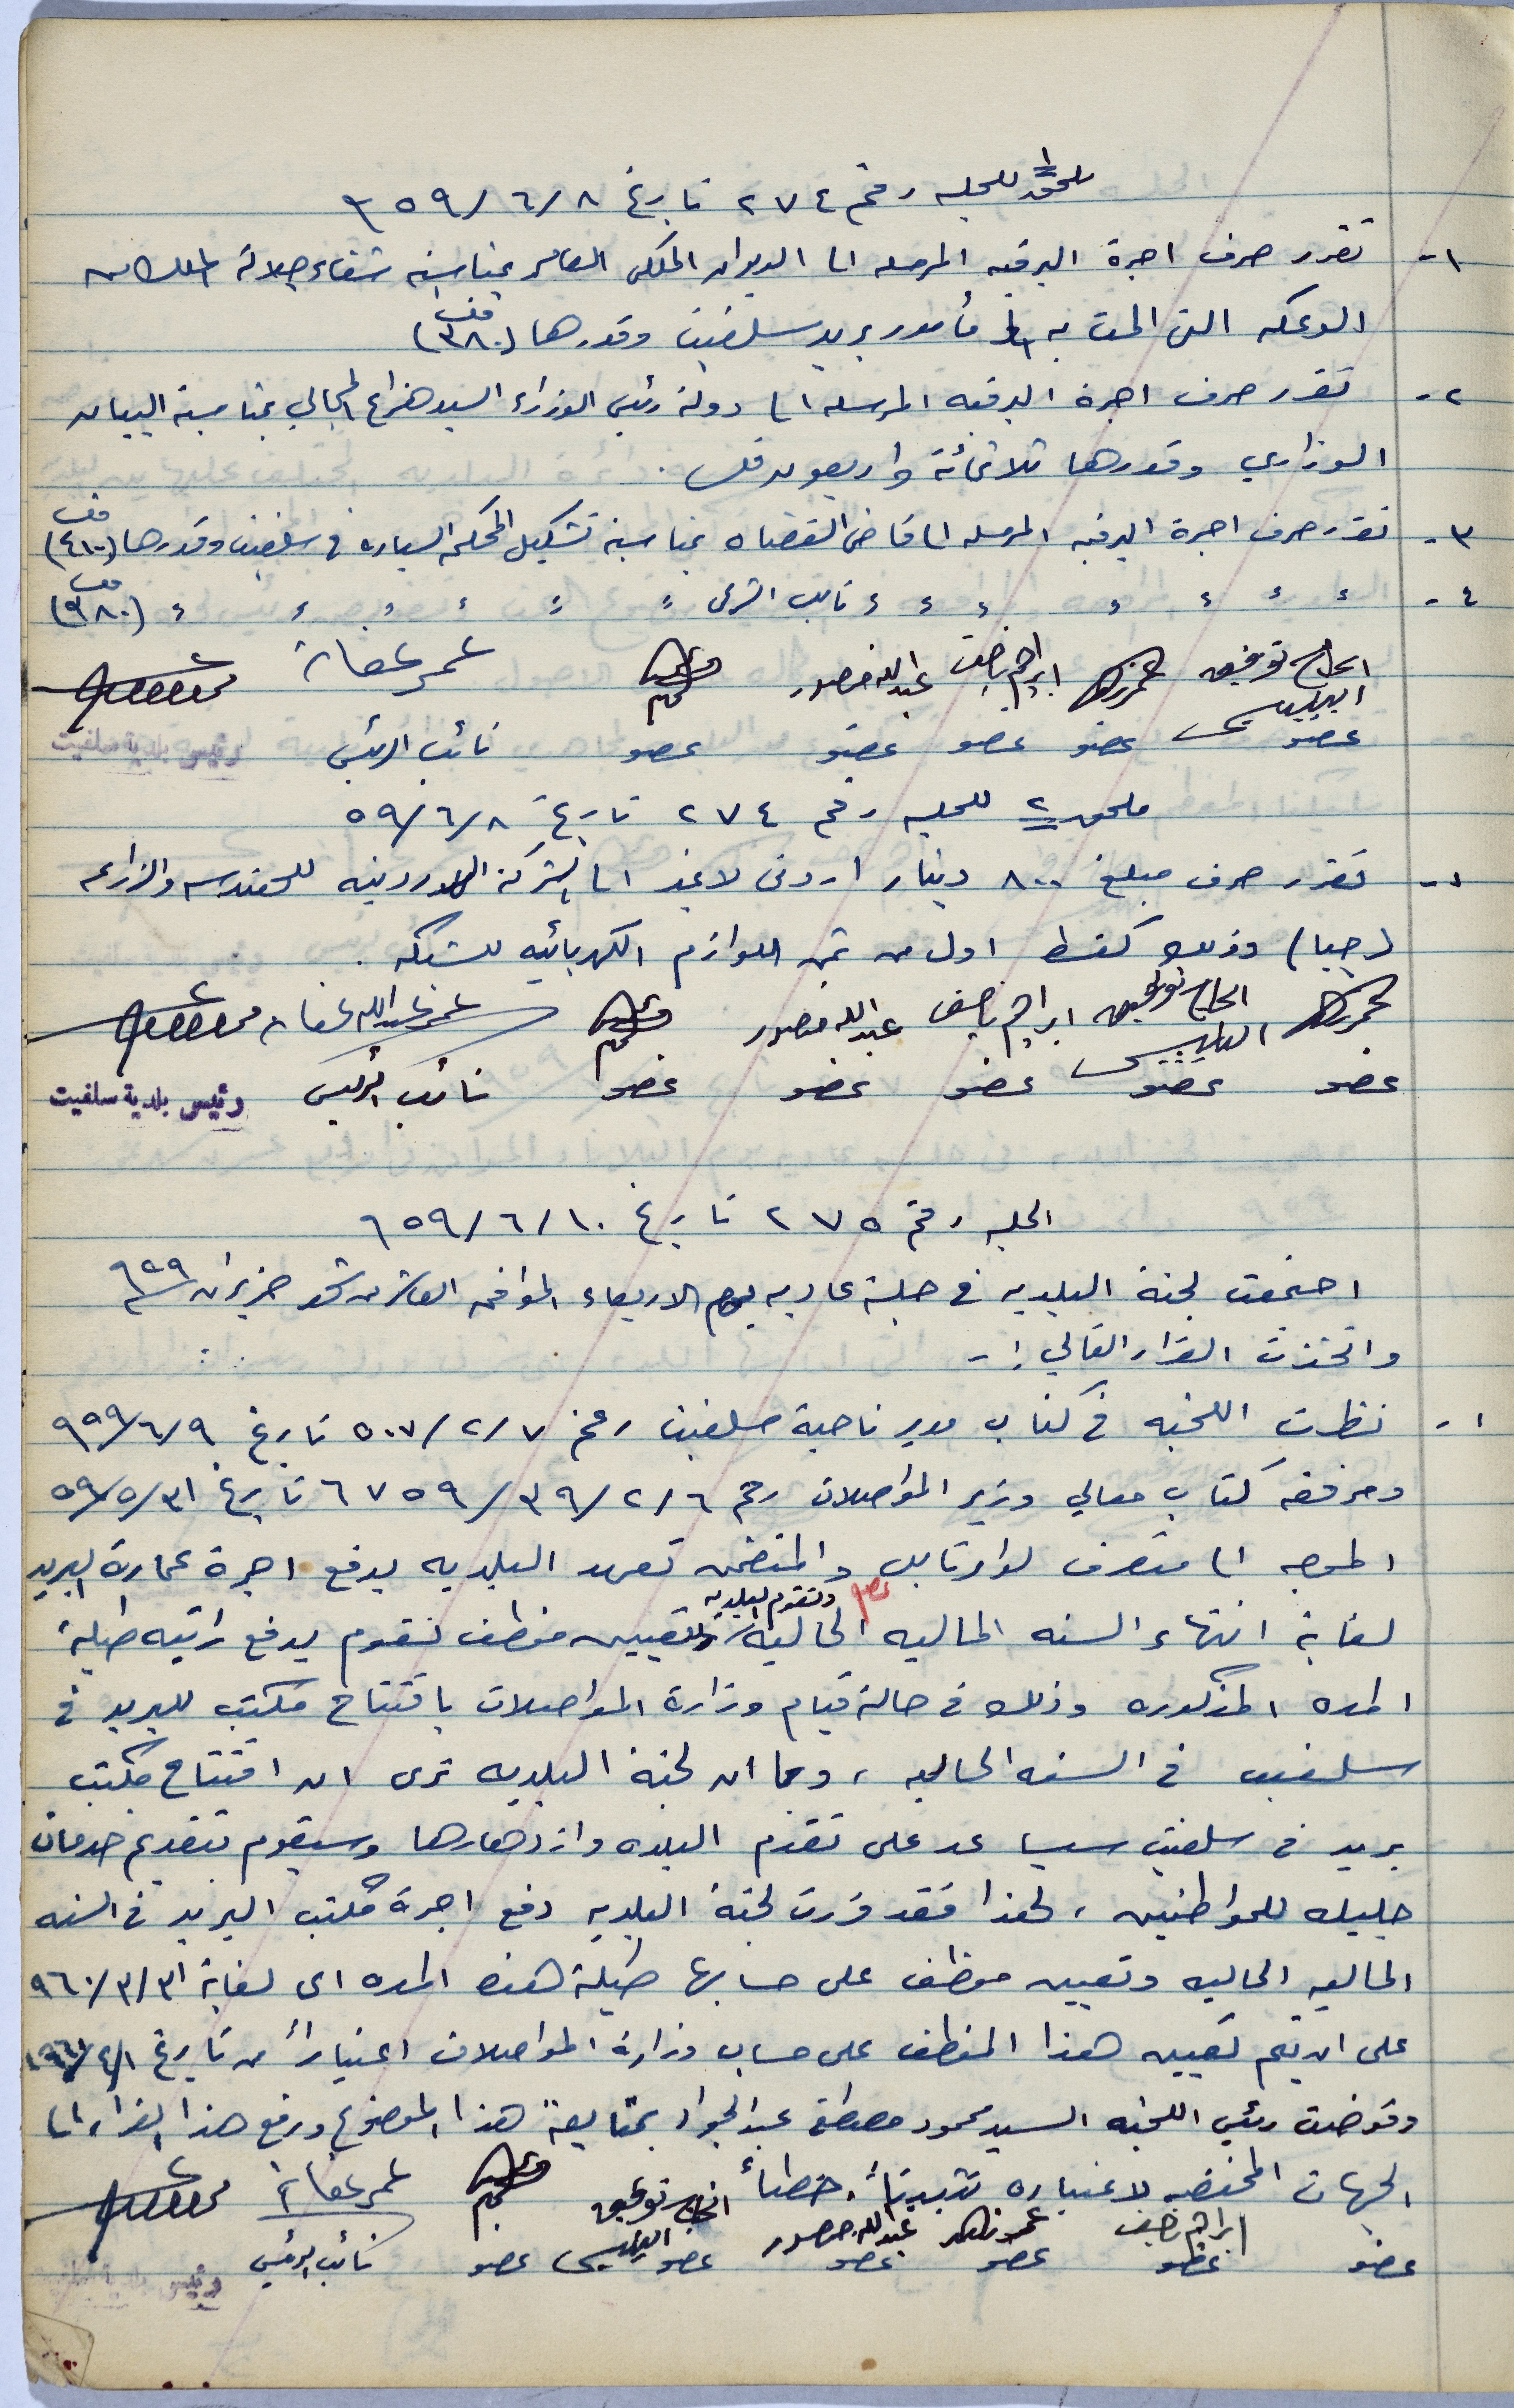 ملحق ١ للجلسه رقم ٢٧٤ تاريخ ٨/٦/٩٥٩
١- تقرر صرف اجرة البرقيه المرسله الى الديوان الملكي العامر بمناسبة شفاء جلالة الملك من
الوعكه التي المت به الى مأمور بريد سلفيت وقدرها (٣٨٠) فلس
٢- تقرر صرف اجرة البرقيه المرسله الى دولة رئيس الوزراء السيد هزاع المجالي بمناسبة البيان
الوزاري وقدرها ثلاثمائة واربعون فلس .
٣- تقرر صرف اجرة البرقيه المرسله الى قاضي القضاه بمناسبة تشكيل المحكمه السياره في سلفيت وقدرها (٤١٠) فلس
٤- " " " " " " " نايب الشرعي " " " " " " (٣٨٠) فلس
الحاج توفيق ابراهيم ناصف عبدالله منصور عمر عفانة
عضو عضو عضو عضو عضو نائب الرئيس رئيس بلدية سلفيت
ملحق ٢ للجلسه رقم ٢٧٤ تاريخ ٥٩/٦/٨
١- تقرر صرف مبلغ ٨٠٠ دينار اردني لا غير الى الشركة الاردنيه للهندسه والزراعه
(جيا) وذلك كقسط اول من ثمن اللوازم الكهربائيه للشبكه .
الحاج توفيق ابراهيم ناصف عبدالله منصور عمر عبدالله عفانه
عضو عضو عضو عضو عضو نائب الرئيس رئيس بلدية سلفيت
الجلسه رقم ٢٧٥ تاريخ ١٠/٦/٩٥٩
اجتمعت لجنة البلديه في جلسة عاديه يوم الاربعاء الموافق العاشر من شهر حزيران سنة ٩٥٩
واتخذت القرار التالي :-
١- نظرت اللجنه في كتاب مدير ناحية سلفيت رقم ٥٠٧/٢/٧ تاريخ ٩٥٩/٦/٩
ومرفقه كتاب معالي وزير المواصلات رقم ٦٧٥٩/٣٩/٢/٦ تاريخ ٥٩/٥/٣١
الموجه الى متصرف لواء نابلس والمتضمن تعهد البلديه بدفع اجرة عمارة البريد
لغاية انتهاء السنه الماليه الحاليه وتقوم البلديه بتعيين موظف تقوم بدفع راتبه طيلة
المده المذكوره وذلك في حالة قيام وزارة المواصلات بافتتاح مكتب للبريد في
سلفيت في السنه الحاليه ، وبما ان لجنة البلديه ترى ان افتتاح مكتب
بريد في سلفيت سيساعد على تقدم البلده وازدهارها وسيقوم بتقديم خدمات
جليله للمواطنين ، لهذا فقد قررت لجنة البلديه دفع اجرة مكتب البريد في السنه
الماليه الحاليه وتعيين موظف على حسابها طيلة هذه المده اى لغاية ٩٦٠/٣/٣١
على ان يتم تعيين هذا الموظف على حساب وزارة المواصلات اعتباراً من تاريخ ١٩٦٠/٤/١
وفوضت رئيس اللجنه السيد محمود مصطفى عبد الجواد بمتابعة هذا الموضوع ورفع هذا القرار الى
الجهات المختصه لاعتباره
ابراهيم ناصف عبدالله منصور الحاج توفيق عمر عفانة
عضو عضو عضو عضو عضو عضو نائب الرئيس رئيس بلدية سلفيت